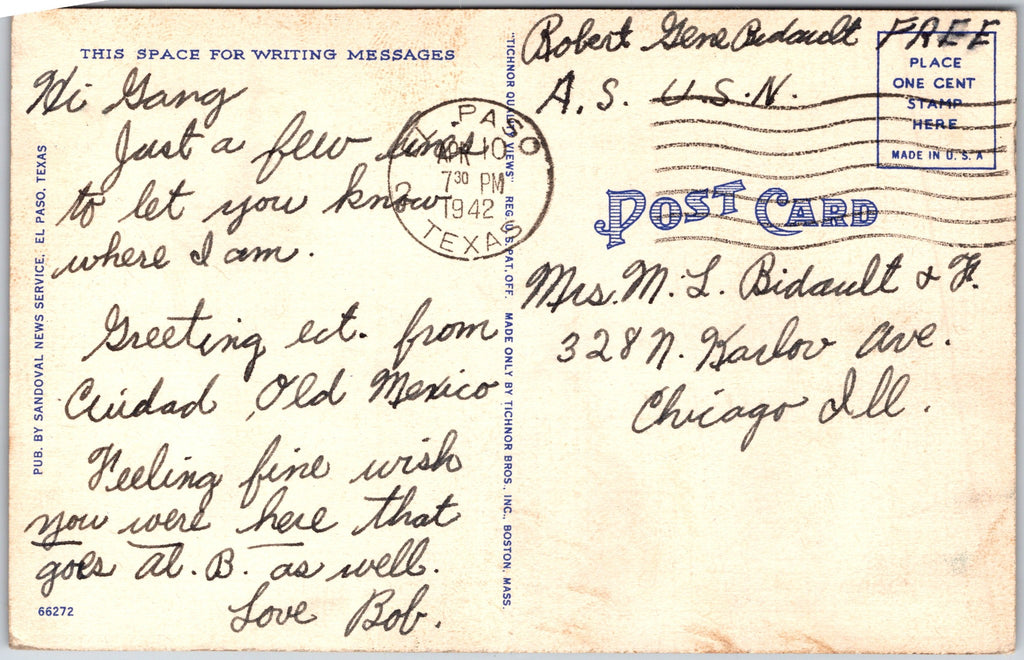 THIS SPACE FOR WRITING MESSAGES
Hi Gang
Just a few lines
to let you know
where I am.
Greeting ect. from
Cuidad, Old Mexico
Feeling fine wish
you were here that
goes Al. B. as well.
Love Bob.
66272
PUB. BY SANDOVAL NEWS SERVICE, EL PASO, TEXAS
PASO
APR 10
7 30 PM
1942
TEXAS
"TICHNOR QUALITY VIEWS" REG. U. S. PAT. OFF. MADE ONLY BY TICHNOR BROS., INC., BOSTON, MASS.
Robert Gene Bidault FREE
A. S. U.S.N.
PLACE
ONE CENT
STAMP
HERE
MADE IN U. S. A
POST CARD
Mrs. M. L. Bidault & F.
328 N. Karlov Ave.
Chicago Ill.